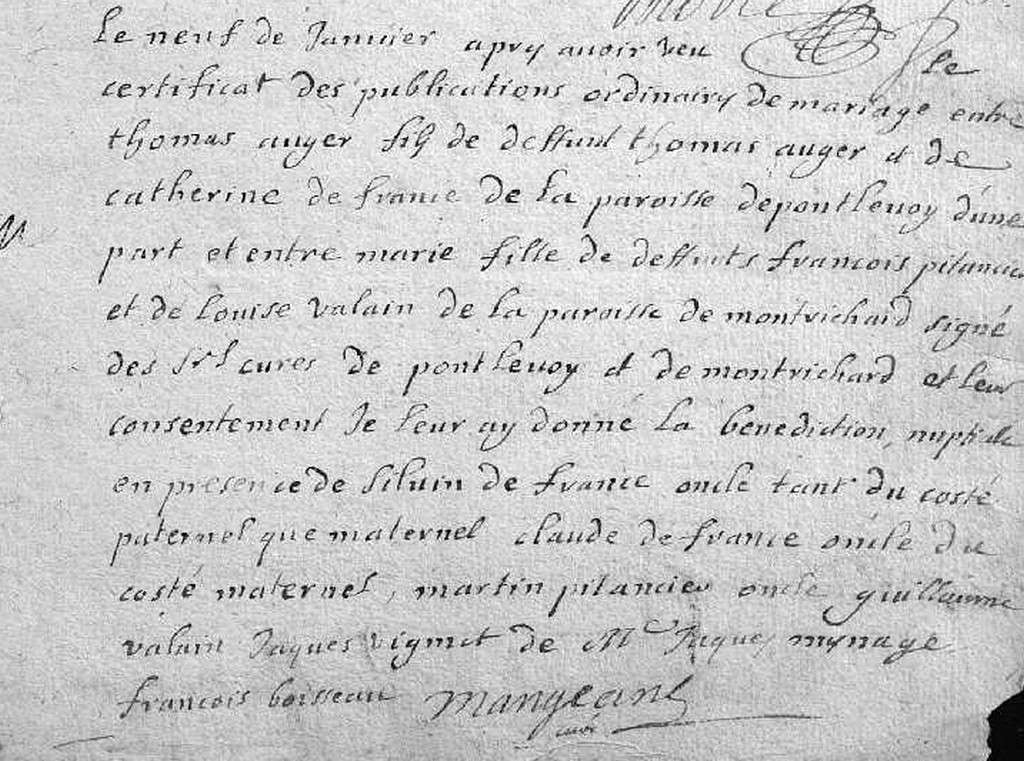 Le neuf de Janvier apry avoir veu le
certificat des publications ordinairy de mariage entre
thomas auger filz de deffunt thomas auger et de
catherine de france de la paroisse de pontlevoy d'une
part et entre marie fille de deffunts francois pitancier
et de Louise valain de la paroisse de montrichard signé
des Srs cures de pontlevoy et de montrichard et leur
consentement Je leur ay donné la benediction nuptialle
en presence de Silvin de france oncle tant du costé
paternel que maternel claude de france oncle du
costé maternel, martin pitancier oncle guillaume
valain Jaques vignet de Me Jaques mynage
francois boisseau Mangeant
curé